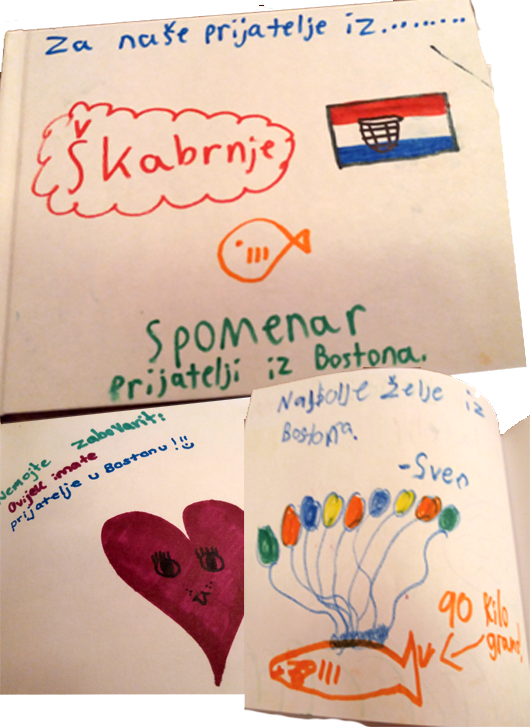 Za naše prijatelje iz.........
Škabrnje
Spomenar
prijatelji iz Bostona.
Nemojte zaboravit:
Uvijek imate
prijatelje u Bostonu!
Najbolje Želje iz
Bostona.
-Sven
90 Kilo
grama!